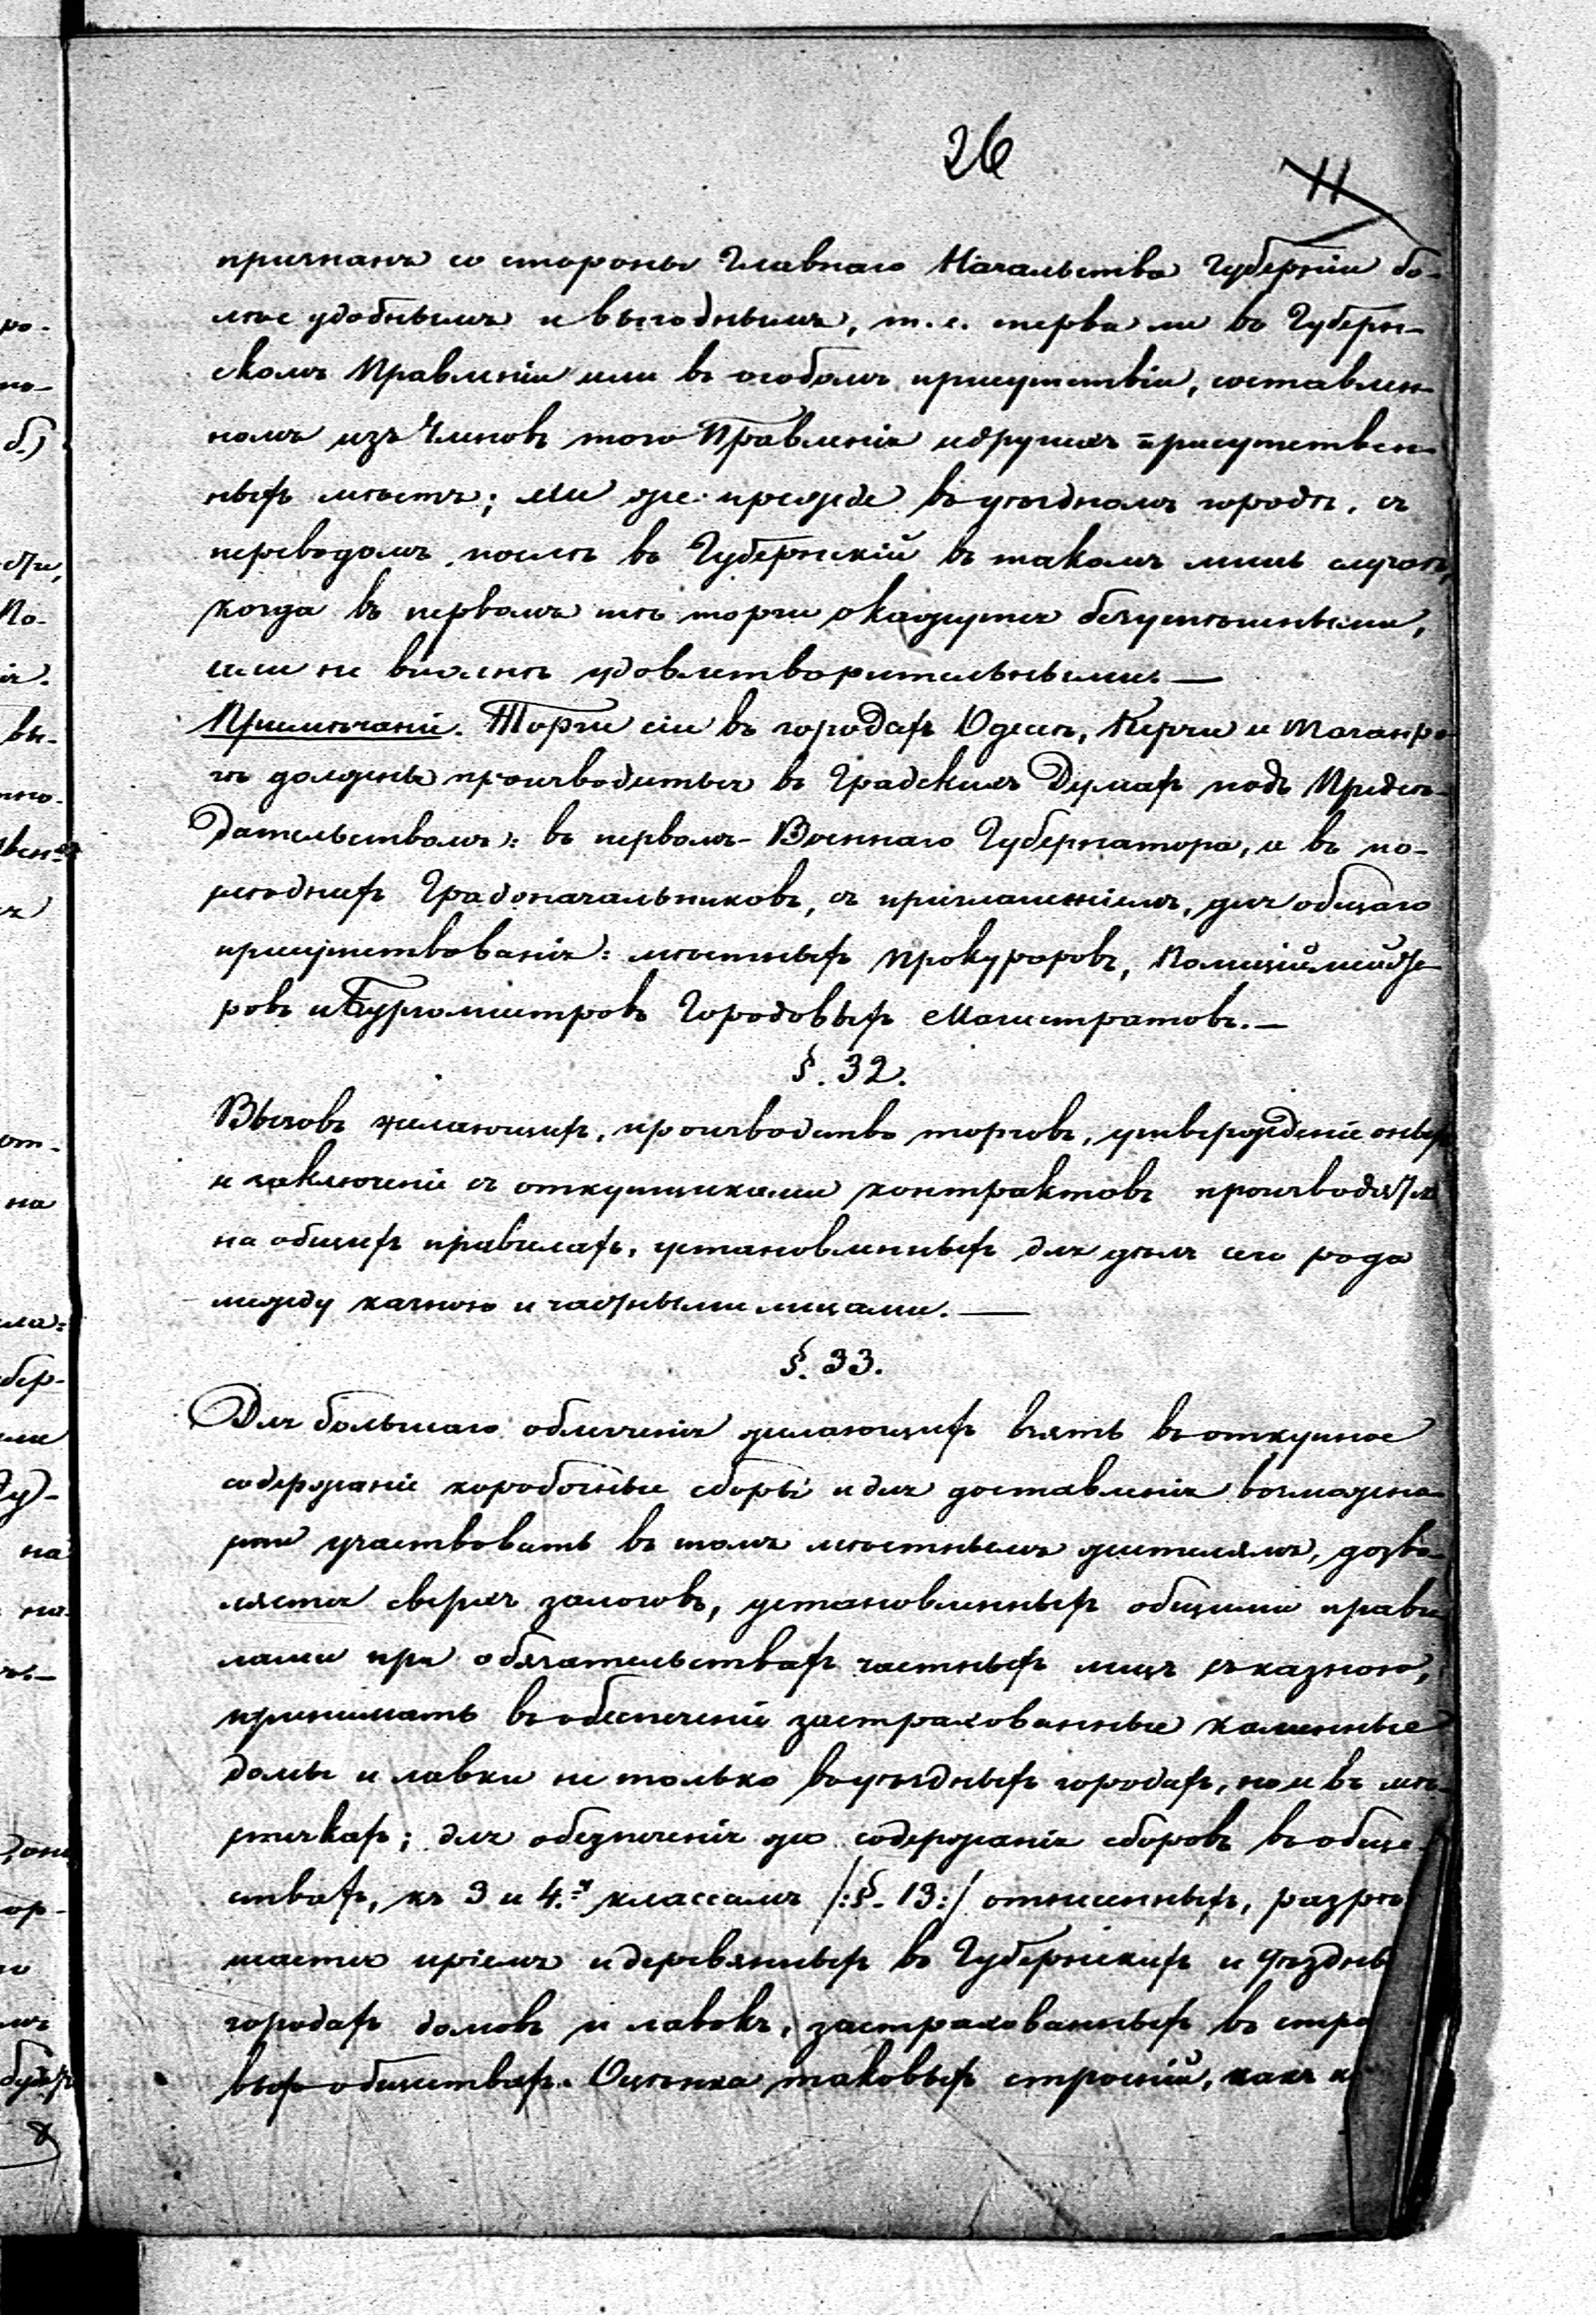 26
11
признанъ со стороны Главнаго Начальства Губерніи бо-
лѣе удобнымъ и выгоднымъ, т. е. перва ли въ Губерн-
скомъ Правленіи или въ особомъ присутствіи, составлен-
номъ изъ Членовъ того Правленія и другихъ присутствен-
ныхъ мѣстъ; или же прежде въ уѣздномъ городѣ, съ
переводомъ послѣ въ Губернскій въ такомъ лишь случаѣ,
когда въ первомъ изъ торги окажутся безуспѣшными,
или не вполнѣ удовлетворительными. —
Примѣчаніе. Торги сіи въ городахъ Одессѣ, Керчи и Таганро-
гѣ должны производиться въ Градскихъ Думахъ подъ Предсѣ-
дательствомъ: въ первомъ - Военнаго Губернатора, и въ по-
слѣднихъ Градоначальниковъ, съ приглашеніемъ, для общаго
присутствованія: мѣстныхъ Прокуроровъ, Полиціймейсте-
ровъ и Бургомистровъ Городовыхъ Магистратовъ. —
§. 32.
Вызовъ желающихъ, производство торговъ, утвержденіе оныхъ
и заключеніе съ откупщиками контрактовъ производятся
на общихъ правилахъ, установленныхъ для дѣлъ сего рода
между казною и частными лицами. —
§. 33.
Для большаго облегченія желающихъ взять въ откупное
содержаніе коробочные сборы и для доставленія возможно-
сти участвовать въ томъ мѣстнымъ жителямъ, дозво-
ляется сверхъ залоговъ, установленныхъ общими прави-
лами при обязательствахъ частныхъ лицъ съ казною,
принимать въ обеспеченіе застрахованные каменные
домы и лавки не только въ уѣздныхъ городахъ, но и въ мѣ-
стечкахъ; для обезпеченія же содержанія сборовъ въ обще-
ствахъ, къ 3 и 4.му классамъ /:§. 13:/ отнесенныхъ, разрѣ
шается пріемъ и деревянныхъ въ Губернскихъ и Уѣздны
городахъ домовъ и лавокъ, застрахованныхъ въ стра
выхъ обществахъ. Оцѣнка таковыхъ строеній, какъ к